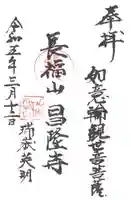 奉拝
如意輪観世音菩薩
長福山 昌隆寺
令和五年三月十二日